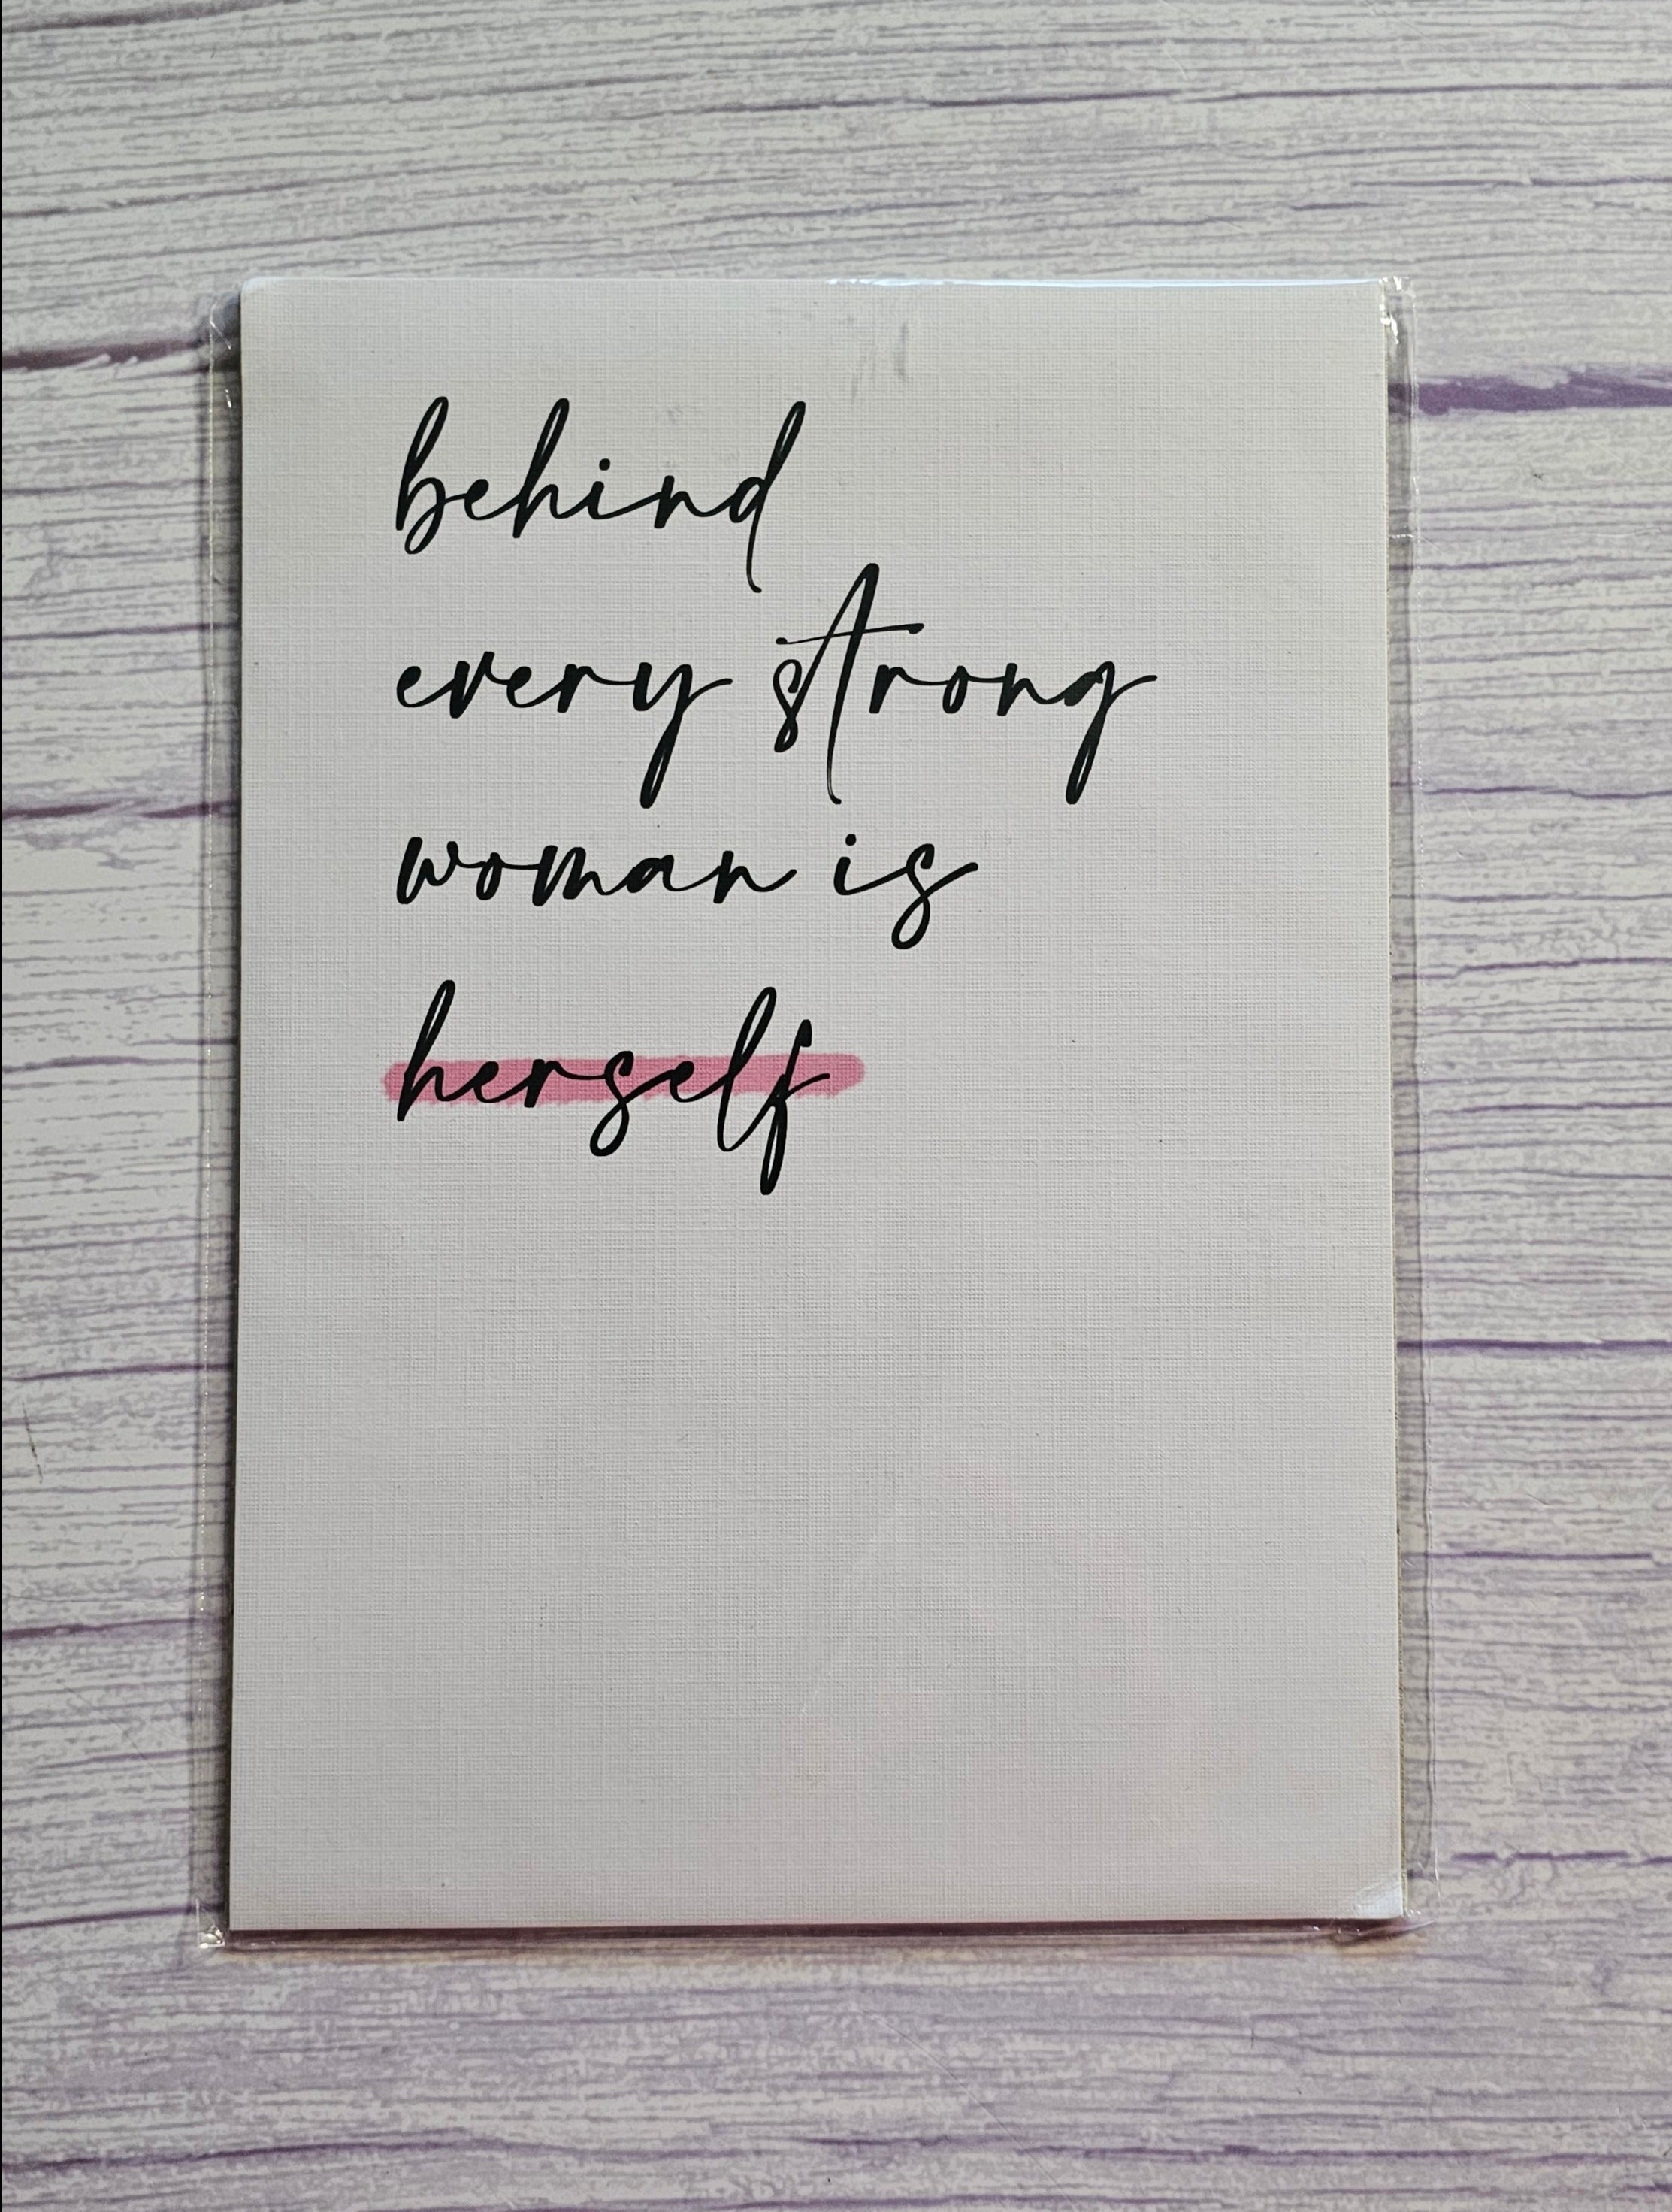 behind
every strong
woman is
herself